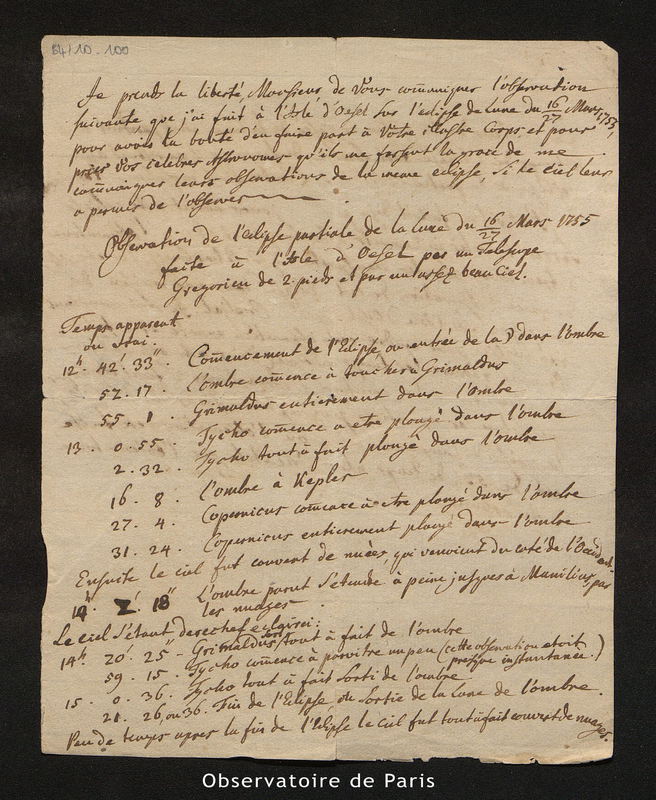 B4/10-100
Je prends la liberté, Monsieur de Vous comuniquer l'observation
suivante que j'ai fait à l'Isle d'Oesel sur l'eclipse de Lune du 16/27 Mars 1755,
pour avoir la bonté d'en faire part à Votre illustre Corps et pour
prier Vos celebres Astronomes qu'ils me fassent la grace de me
comuniquer leurs observations de la meme eclipse, Si le Ciel leur
a permis de l'observer
Observation de l'eclipse partiale de la lune du 16/27 Mars 1755
faite à l'Isle d'Oesel par un Telescope
Gregorien de 2. pieds et par un assez beau Ciel.
Temps apparent
ou vrai.
12h. 42'. 33''. Comencement de l'Eclipse, ou entrée de la ☽ dans l'ombre
52. 17. L'ombre comence à toucher à Grimaldus
55. 1. Grimaldus entierement dans l'Ombre
13. 0. 55. Tycho comence a etre plongé dans l'ombre
2. 32. Tycho tout à fait plongé dans l'ombre
16. 8. l'ombre à Kepler
27. 4. Copernicus comence à etre plongé dans l'ombre
31. 24. Copernicus entierement plongé dans l'ombre
Ensuite le ciel fut couvert de nuées, qui venoient du coté de l'Occident.
14h. 2' 18'' L'ombre parut s'etendre à peine jusques à Manilius, par
les nuages.
Le ciel s'étant derechef eclairci:
14h 20' 25'' - Grimaldus sorti tout à fait de l'ombre
59. 15. - Tycho comence à paroitre un peu (cette observation etoit
presque instantanée.)
15. 0. 36. Tycho tout à fait sorti de l'ombre
21. 26, ou 36. Fin de l'Eclipse, ou Sortie de la Lune de l'ombre.
Peu de temps apres la fin de l'Eclipse le ciel fut tout à fait couvert de nuages.
Observatoire de Paris